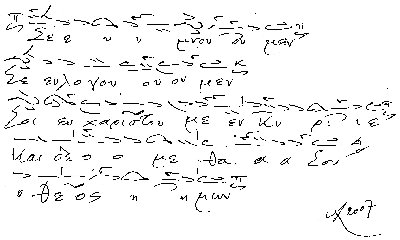 Σε ε υ υ μνου ου μεν
Σε ευλογου ου ου μεν
Σοι ευ χαριστου με εν Κυ ρι ι ε
Και δε ο ο με θα α α Σου
ο Θε ος η η μων
2007